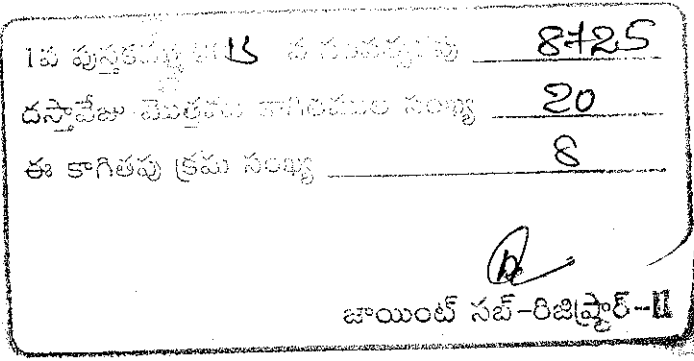 1వ పుస్తకము 2013 వ సంవత్సరపు 8725
దస్తావేజు మొత్తము కాగితముల సంఖ్య 20
ఈ కాగితపు క్రమ సంఖ్య 8
జాయింట్ సబ్-రిజిష్ట్రార్-II